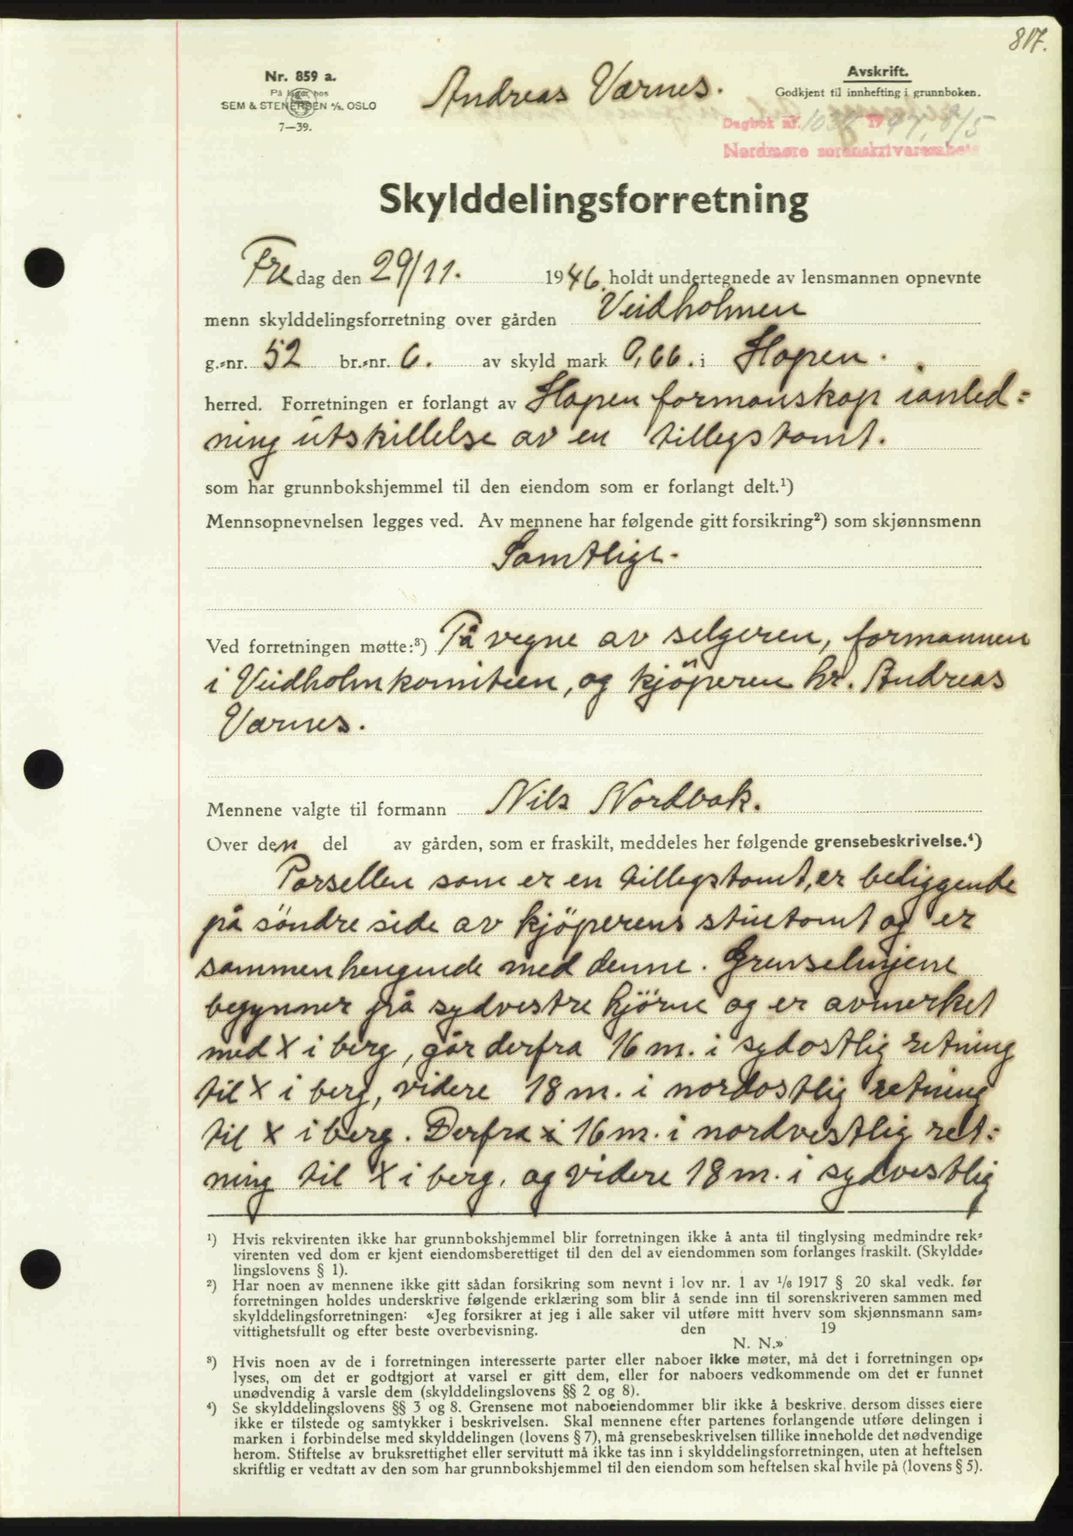 817.
Nr. 859 a.
På lager hos
SEM & STENERSEN A/S. OSLO
7—39.
Andreas Værnes.
Avskrift.
Godkjent til innhefting i grunnboken.
Dagbok nr. 1038 1947, 8/5
Nordmøre sorenskriverembete
Skylddelingsforretning
Fredag den 29/11. 1946. holdt undertegnede av lensmannen opnevnte
menn skylddelingsforretning over gården Veidholmen
g.-nr. 52 br.-nr. 6. av skyld mark 0,66. i Hopen.
herred. Forretningen er forlangt av Hopen formanskap ianled-
ning utskillelse av en tillegstomt.
som har grunnbokshjemmel til den eiendom som er forlangt delt.¹)
Mennsopnevnelsen legges ved. Av mennene har følgende gitt forsikring²) som skjønnsmenn
Samtlige.
Ved forretningen møtte:³) På vegne av selgeren, formannen
i Veidholmkomiteen, og kjöperen hr. Andreas
Værnes.
Mennene valgte til formann Nils Nordbak.
Over den del av gården, som er fraskilt, meddeles her følgende grensebeskrivelse.⁴)
Parsellen som er en tillegstomt, er beliggende
på söndre side av kjöperens stuetomt og er
sammenhengende med denne. Grenselinjene
begynner frå sydvestre hjörne og er avmerket
med X i berg, går derfra 16 m. i sydostlig retning
til X i berg, videre 18 m. i nordostlig retning
til X i berg. Derfra 16 m. i nordvestlig ret-
ning til X i berg, og videre 18 m. i sydvestlig
¹) Hvis rekvirenten ikke har grunnbokshjemmel blir forretningen ikke å anta til tinglysing medmindre rek-
virenten ved dom er kjent eiendomsberettiget til den del av eiendommen som forlanges fraskilt. (Skyldde-
lingslovens § 1).
²) Har noen av mennene ikke gitt sådan forsikring som nevnt i lov nr. 1 av 1/6 1917 § 20 skal vedk. før
forretningen holdes underskrive følgende erklæring som blir å sende inn til sorenskriveren sammen med
skylddelingsforretningen: «Jeg forsikrer at jeg i alle saker vil utføre mitt hverv som skjønnsmann sam-
vittighetsfullt og efter beste overbevisning. den 19
N. N.»
³) Hvis noen av de i forretningen interesserte parter eller naboer ikke møter, må det i forretningen op-
lyses, om det er godtgjort at varsel er gitt dem, eller for naboers vedkommende om det er funnet
unødvendig å varsle dem (skylddelingslovens §§ 2 og 8).
⁴) Se skylddelingslovens §§ 3 og 8. Grensene mot naboeiendommer blir ikke å beskrive, dersom disses eiere
ikke er tilstede og samtykker i beskrivelsen. Skal mennene efter partenes forlangende utføre delingen i
marken i forbindelse med skylddelingen (lovens § 7), må grensebeskrivelsen tillike inneholde det nødvendige
herom. Stiftelse av bruksrettighet eller servitutt må ikke tas inn i skylddelingsforretningen, uten at heftelsen
skriftlig er vedtatt av den som har grunnbokshjemmel til den eiendom som heftelsen skal hvile på (lovens § 5).